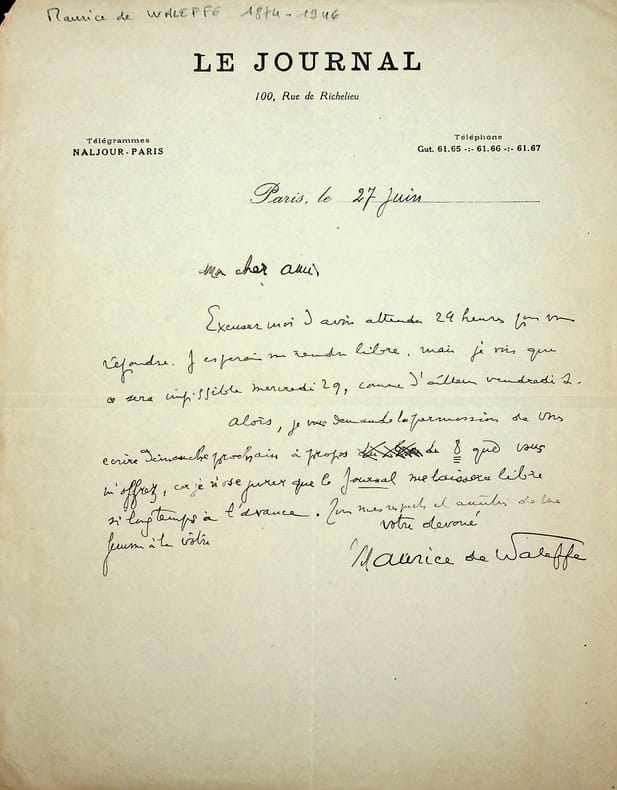 Maurice de WALEFFE 1874-1946
LE JOURNAL
100, Rue de Richelieu
Télégrammes
NALJOUR-PARIS
Téléphone
Gut. 61.65 -:- 61.66 -:- 61.67
Paris, le 27 juin
Mon cher ami,
Excusez moi d'avoir attendu 24 heures pour vous
répondre. J'espérais me rendre libre, mais je vois que
ce sera impossible mercredi 29, comme d'ailleurs vendredi
Alors, je vous demande la permission de vous
écrire Dimanche prochain à propos de 8 que vous
m'offrez, car je n'ose jurer que le Journal me laissera libre
si longtemps à l'avance. mes respects et amitiés de ma
femme à la vôtre
votre dévoué
Maurice de Waleffe